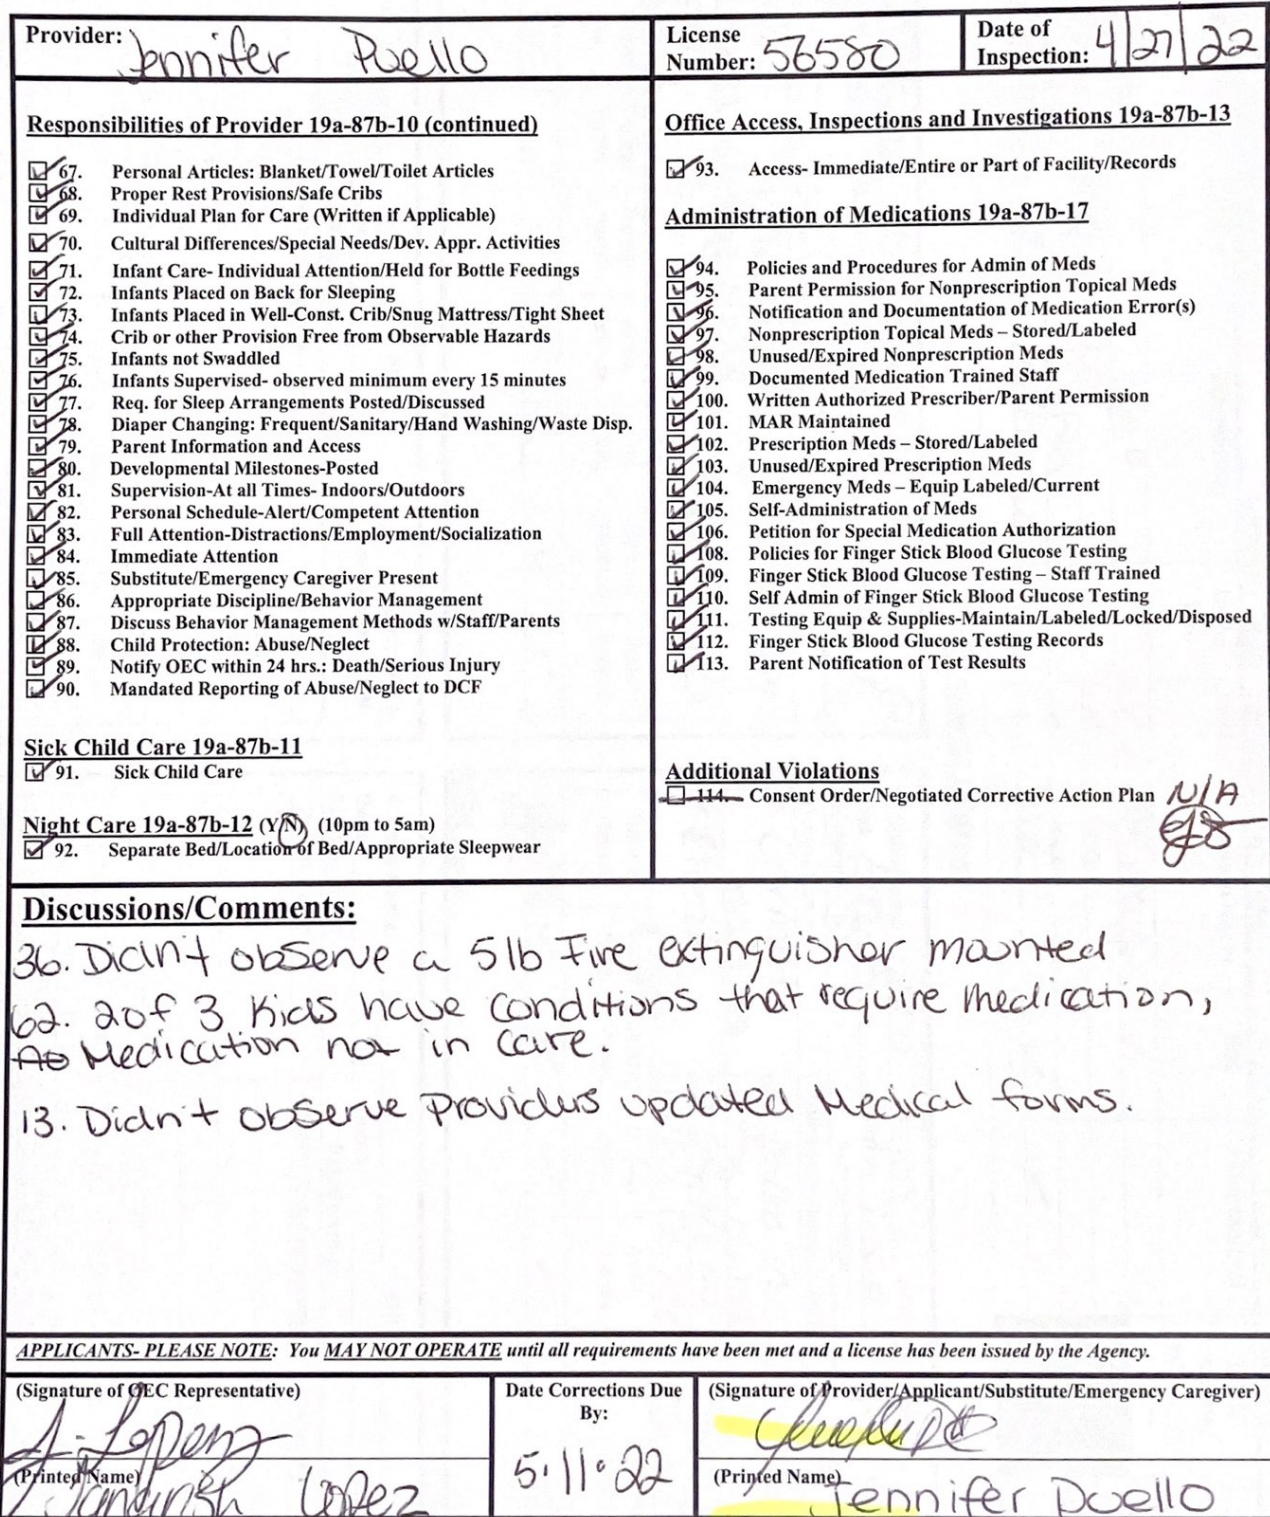 Provider: Jennifer Puello
License Number: 56580
Date of Inspection: 4/27/22
Responsibilities of Provider 19a-87b-10 (continued)
67. Personal Articles: Blanket/Towel/Toilet Articles
68. Proper Rest Provisions/Safe Cribs
69. Individual Plan for Care (Written if Applicable)
70. Cultural Differences/Special Needs/Dev. Appr. Activities
71. Infant Care- Individual Attention/Held for Bottle Feedings
72. Infants Placed on Back for Sleeping
73. Infants Placed in Well-Const. Crib/Snug Mattress/Tight Sheet
74. Crib or other Provision Free from Observable Hazards
75. Infants not Swaddled
76. Infants Supervised- observed minimum every 15 minutes
77. Req. for Sleep Arrangements Posted/Discussed
78. Diaper Changing: Frequent/Sanitary/Hand Washing/Waste Disp.
79. Parent Information and Access
80. Developmental Milestones-Posted
81. Supervision-At all Times- Indoors/Outdoors
82. Personal Schedule-Alert/Competent Attention
83. Full Attention-Distractions/Employment/Socialization
84. Immediate Attention
85. Substitute/Emergency Caregiver Present
86. Appropriate Discipline/Behavior Management
87. Discuss Behavior Management Methods w/Staff/Parents
88. Child Protection: Abuse/Neglect
89. Notify OEC within 24 hrs.: Death/Serious Injury
90. Mandated Reporting of Abuse/Neglect to DCF
Sick Child Care 19a-87b-11
91. Sick Child Care
Night Care 19a-87b-12 (Y/N) (10pm to 5am)
92. Separate Bed/Location of Bed/Appropriate Sleepwear
Office Access, Inspections and Investigations 19a-87b-13
93. Access- Immediate/Entire or Part of Facility/Records
Administration of Medications 19a-87b-17
94. Policies and Procedures for Admin of Meds
95. Parent Permission for Nonprescription Topical Meds
96. Notification and Documentation of Medication Error(s)
97. Nonprescription Topical Meds – Stored/Labeled
98. Unused/Expired Nonprescription Meds
99. Documented Medication Trained Staff
100. Written Authorized Prescriber/Parent Permission
101. MAR Maintained
102. Prescription Meds – Stored/Labeled
103. Unused/Expired Prescription Meds
104. Emergency Meds – Equip Labeled/Current
105. Self-Administration of Meds
106. Petition for Special Medication Authorization
108. Policies for Finger Stick Blood Glucose Testing
109. Finger Stick Blood Glucose Testing – Staff Trained
110. Self Admin of Finger Stick Blood Glucose Testing
111. Testing Equip & Supplies-Maintain/Labeled/Locked/Disposed
112. Finger Stick Blood Glucose Testing Records
113. Parent Notification of Test Results
Additional Violations
114. Consent Order/Negotiated Corrective Action Plan N/A
Discussions/Comments:
36. Didn't observe a 5lb Fire extinguisher mounted
62. 2 of 3 Kids have conditions that require medication,
Medication not in care.
13. Didn't observe providers updated Medical forms.
APPLICANTS- PLEASE NOTE: You MAY NOT OPERATE until all requirements have been met and a license has been issued by the Agency.
(Signature of OEC Representative)
(Printed Name) Lopez
Date Corrections Due
By:
5·11·22
(Signature of Provider/Applicant/Substitute/Emergency Caregiver)
(Printed Name) Jennifer Puello